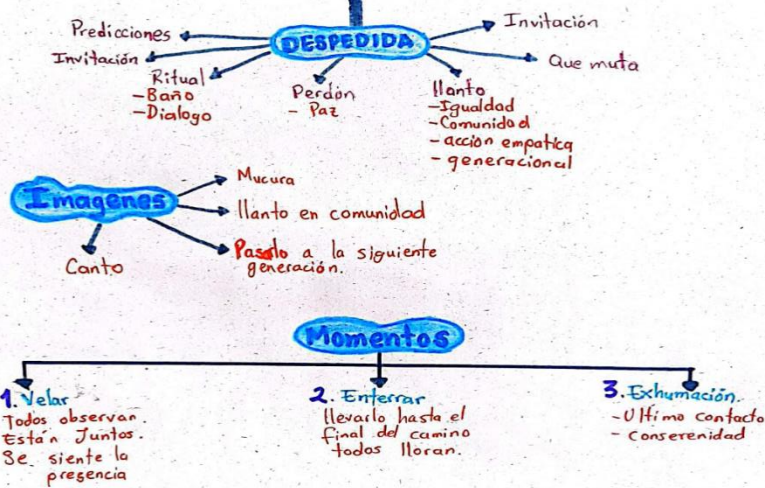 DESPEDIDA
Predicciones
Invitación
Ritual
-Baño
-Dialogo
Perdón
- Paz
llanto
-Igualdad
-Comunidad
- acción empatica
- generacional
Invitación
Que muta
Imagenes
Mucura
llanto en comunidad
Pasarlo a la siguiente
generación.
Canto
Momentos
1. Velar
Todos observan.
Están Juntos.
Se siente la
presencia
2. Enterrar
llevarlo hasta el
final del camino
todos lloran.
3. Exhumación.
-Ultimo contacto
- Conserenidad